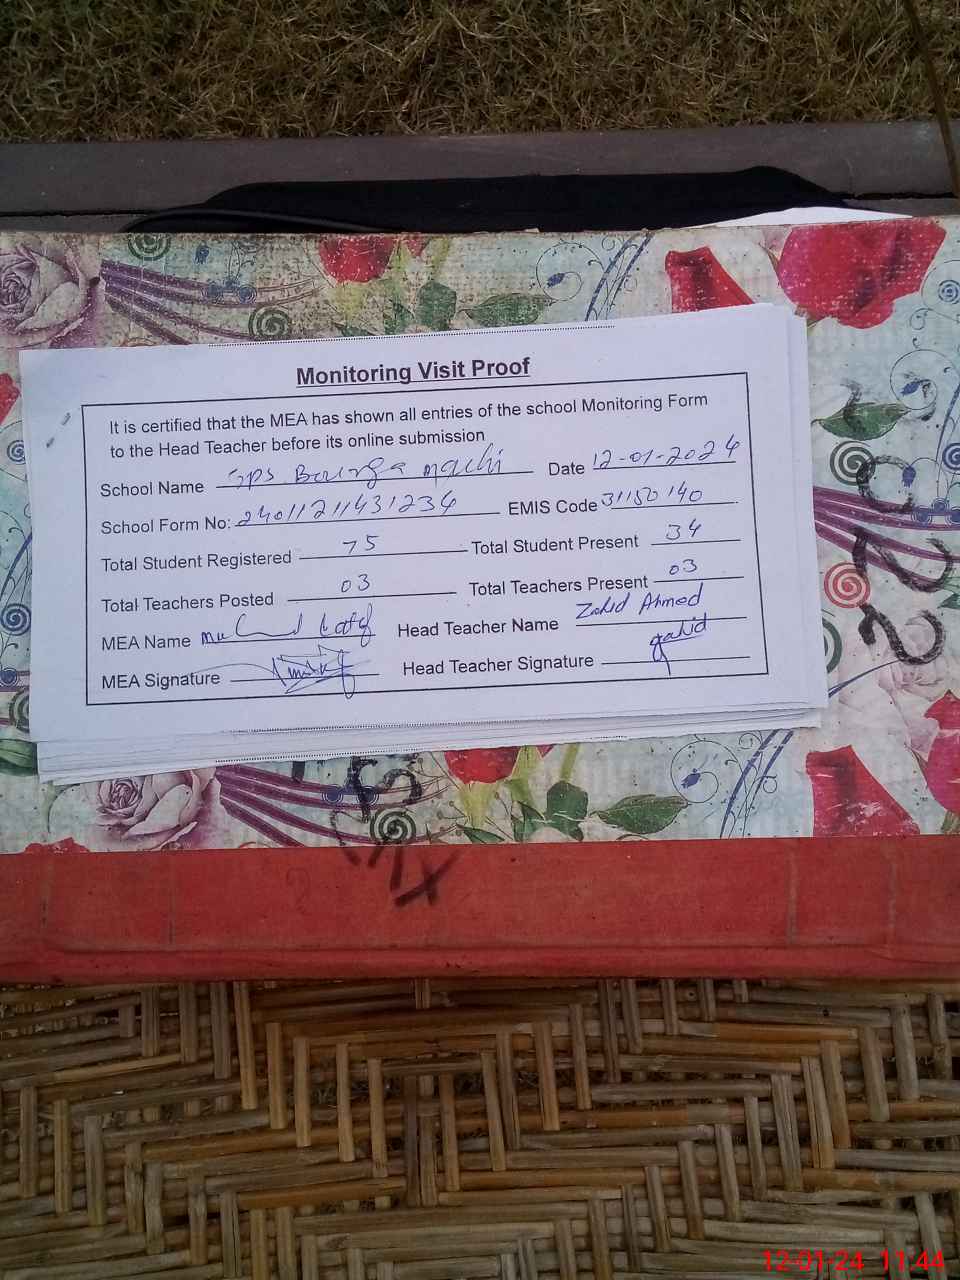 Monitoring Visit Proof
It is certified that the MEA has shown all entries of the school Monitoring Form
to the Head Teacher before its online submission
School Name GPS Date 12-01-2024
School Form No: 24011211431234 EMIS Code 31150140
Total Student Registered 75 Total Student Present 34
Total Teachers Posted 03 Total Teachers Present 03
MEA Name Head Teacher Name Zahid Ahmed
MEA Signature Head Teacher Signature Zahid
12-01-24 11:44